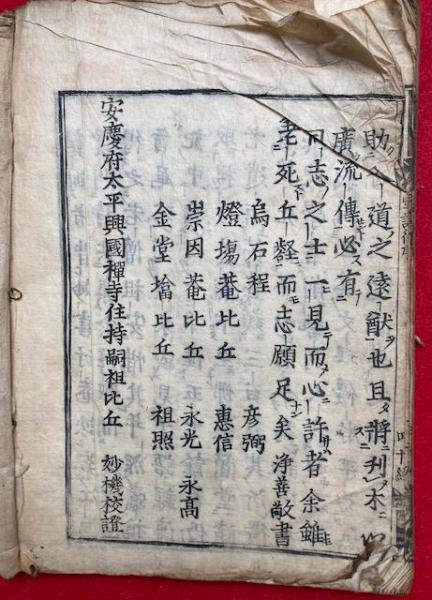 助入道之遠猷也且將刊木以
廣流傳必有
同志之士一見而心許者余雖
老死丘壑而志願足矣淨善敬書
烏石程 彦弼
燈塲菴比丘 惠信
崇因菴比丘 永光 永高
金堂壋比丘 祖照
安慶府太平興國禪寺住持嗣祖比丘 妙機校證